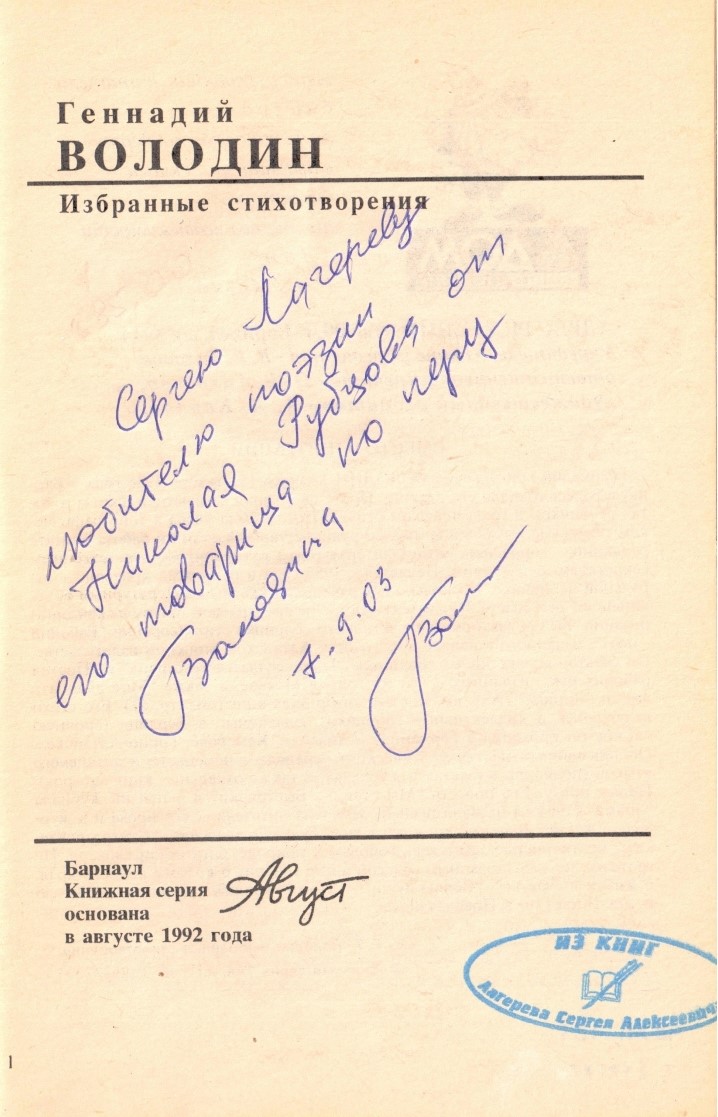 Геннадий
ВОЛОДИН
Избранные стихотворения
Сергею Лагереву
любителю поэзии
Николая Рубцова от
его товарища по перу
Володина
7.9.03
Барнаул
Книжная серия Август
основана
в августе 1992 года
ИЗ КНИГ
Лагерева Сергея Алексеевича
1